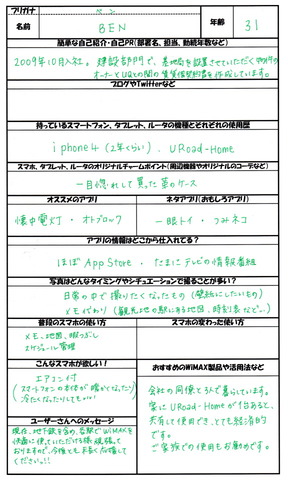 フリガナ ベン
名前 BEN 年齢 31
簡単な自己紹介・自己PR(部署名、担当、勤続年数など)
2009年10月入社。建設部門で、基地局を設置させていただく物件の
オーナーとUQとの間の賃貸借契約書を作成しています。
ブログやTwitterなど
持っているスマートフォン、タブレット、ルータの機種とそれぞれの使用歴
iphone4(2年くらい)、URoad-Home
スマホ、タブレット、ルータのオリジナルチャームポイント(周辺機器やオリジナルのコーデなど)
一目惚れして買った革のケース
オススメのアプリ ネタアプリ(おもしろアプリ)
懐中電灯・オトブロック 一眼トイ・つみネコ
アプリの情報はどこから仕入れてる?
ほぼAppStore、たまにテレビの情報番組
写真はどんなタイミングやシチュエーションで撮ることが多い?
日常の中で撮りたくなったもの(壁紙にしたいもの)
メモ代わり(観光地の駅にある地図、時刻表など…)
普段のスマホの使い方 スマホの変わった使い方
メモ、地図、暇つぶし
スケジュール管理
こんなスマホが欲しい!
エアコン付
(スマートフォンの本体が暖かくなったり
冷たくなったりしてもいい)
おすすめのWiMAX製品や活用法など
会社の同僚と3人で暮らしています。
家にURoad-Homeが1台あると、
共有して使用でき、とても経済的
です。
ご家族での使用もお勧めです。
ユーザーさんへのメッセージ
現在、地下鉄を含め、各駅でWiMAXを
快適に使っていただける様、頑張って
おりますので、今後とも末長く応援して
ください!!